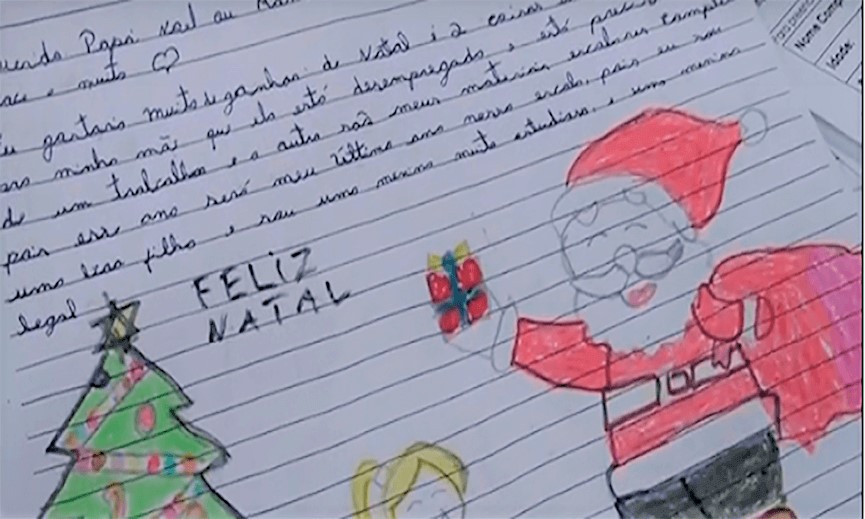 Papai Noel ou
e muito
Eu gostaria muito de ganhar de Natal é 2 coisas
minha mãe que ela está desempregada e está
de um trabalho e a outra são meus materiais escolares
pois esse ano será meu último ano nessa escola, pois eu sou
uma boa filha e sou uma menina muito estudiosa, e uma menina
legal
FELIZ
NATAL
Nome Comp
Idade: